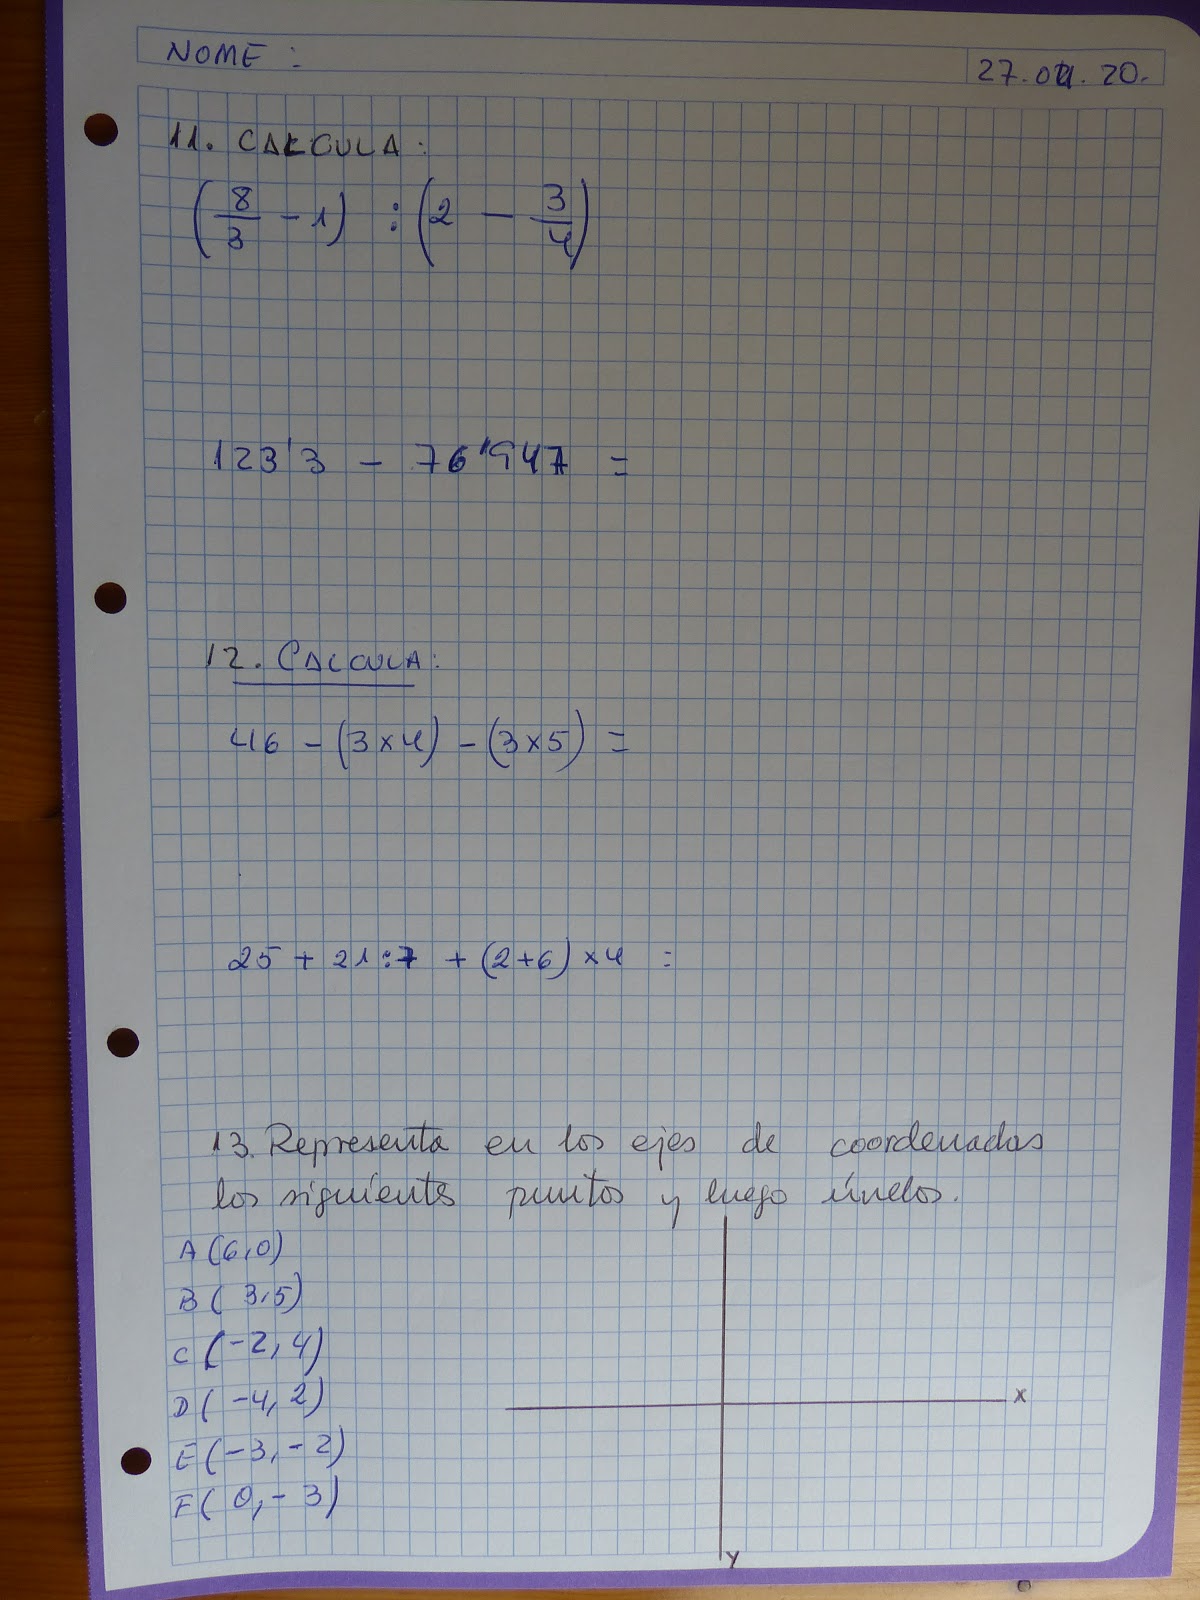 NOME :
27.04.20.
11. CALCULA:
(8/3 - 1) : (2 - 3/4)
123'3 - 76'947 =
12. CALCULA:
46 - (3x4) - (3x5) =
25 + 21:7 + (2+6) x4 =
13. Representa en los ejes de coordenadas
los siguientes puntos y luego únelos.
A (6,0)
B ( 3,5)
C (-2, 4)
D ( -4, 2)
E (-3, -2)
F ( 0, - 3)
X
Y